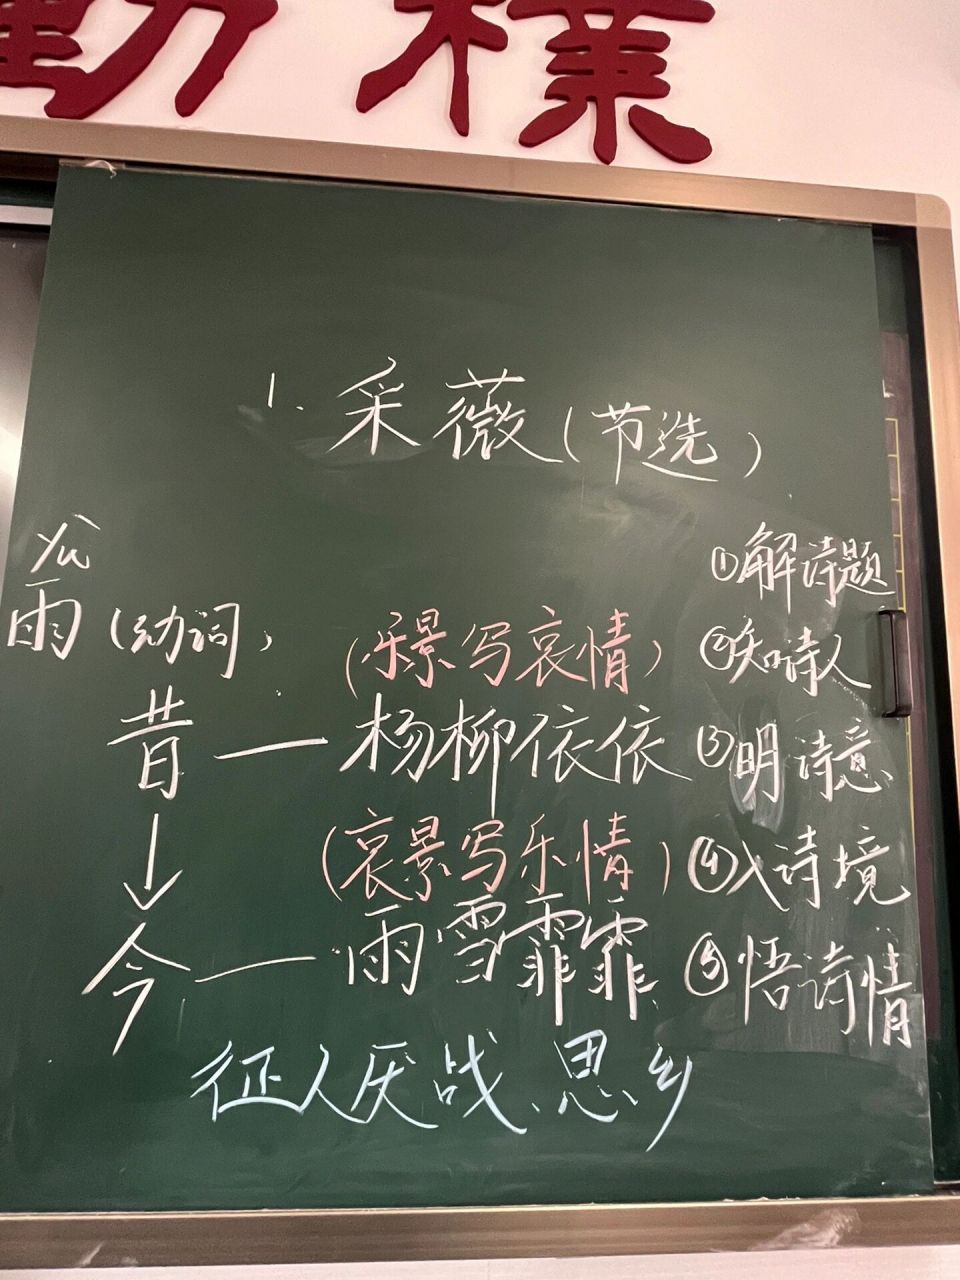 勤樸
1. 采薇(节选)
yù
雨(动词)
(乐景写哀情)
昔—杨柳依依
↓
(哀景写乐情)
今—雨雪霏霏
征人厌战、思乡
①解诗题
②知诗人
③明诗意
④入诗境
⑤悟诗情